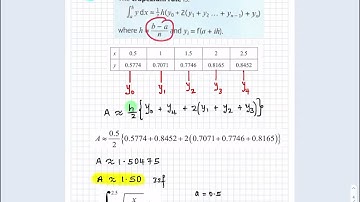 The trapezium rule is:
∫ₐᵇ y dx ≈ ½h(y₀ + 2(y₁ + y₂ ... + yₙ₋₁) + yₙ)
where h = (b − a)/n and yᵢ = f(a + ih).
x 0.5 1 1.5 2 2.5
y 0.5774 0.7071 0.7746 0.8165 0.8452
y₀ y₁ y₂ y₃ y₄
A ≈ h/2 { y₀ + y₄ + 2(y₁ + y₂ + y₃) }
A ≈ 0.5/2 {0.5774 + 0.8452 + 2(0.7071 + 0.7746 + 0.8165)}
A ≈ 1.50475
A ≈ 1.50 3sf
2.5 x a = 0.5